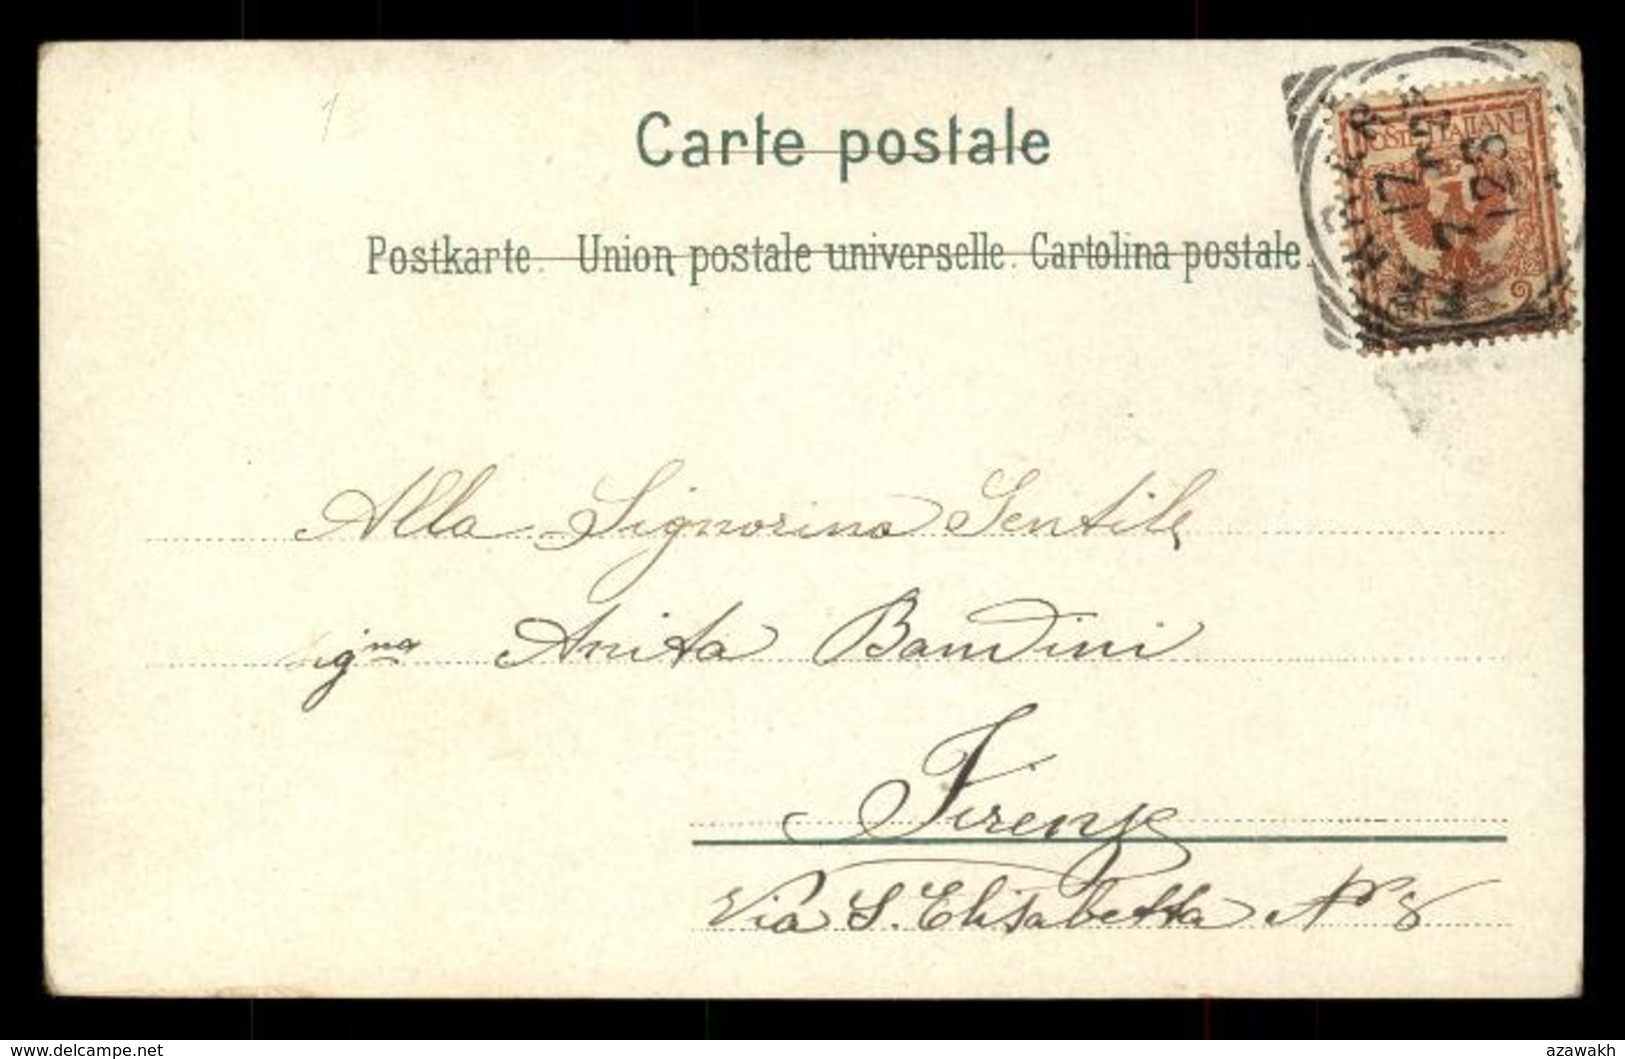 1
Carte postale
POSTE ITALIANE
Postkarte. Union postale universelle. Cartolina postale.
FERRARA
7
12S
Alla Signorina Gentile
Signa Anita Bandini
Firenze
Via S. Elisabetta No 8
www.delcampe.net
azawakh